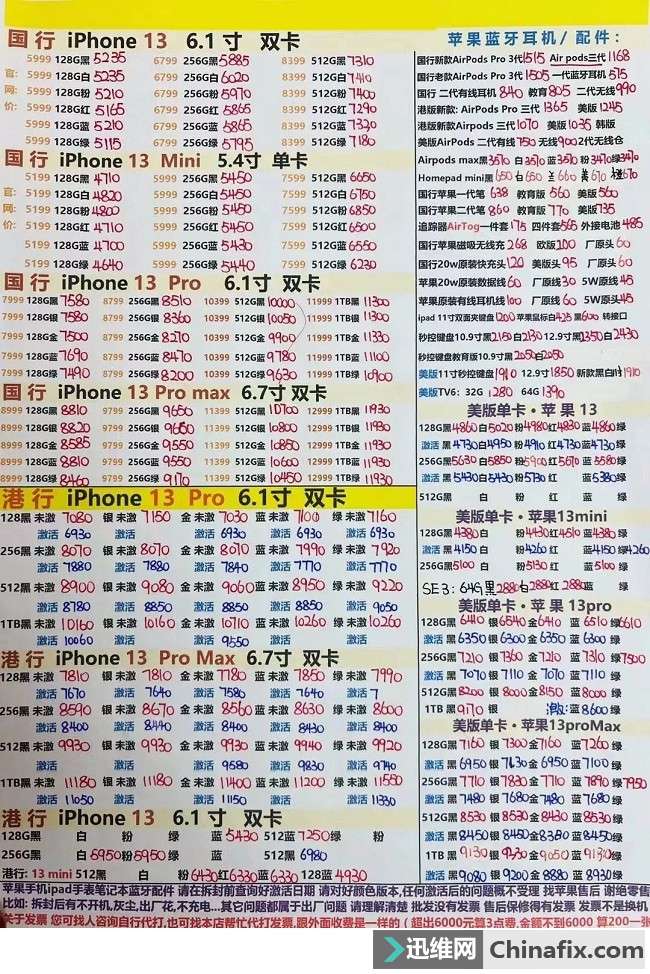 国行 iPhone 13 6.1寸 双卡
官网价:
5999 128G黑 5235 6799 256G黑 5885 8399 512G黑 7310
5999 128G白 5235 6799 256G白 6020 8399 512G白 7410
5999 128G粉 5210 6799 256G粉 5970 8399 512G粉 7420
5999 128G红 5165 6799 256G红 5865 8399 512G红 7290
5999 128G蓝 5210 6799 256G蓝 5865 8399 512G蓝 7320
5999 128G绿 5115 6799 256G绿 5795 8399 512G绿 7180
国行 iPhone 13 Mini 5.4寸 单卡
官网价:
5199 128G黑 4710 5999 256G黑 5450 7599 512G黑 6650
5199 128G白 4820 5999 256G白 5450 7599 512G白 6750
5199 128G粉 4800 5999 256G粉 5450 7599 512G粉 6850
5199 128G红 4710 5999 256G红 5450 7599 512G红 6500
5199 128G蓝 4700 5999 256G蓝 5430 7599 512G蓝 6550
5199 128G绿 4640 5999 256G绿 5440 7599 512G绿 6230
国行 iPhone 13 Pro 6.1寸 双卡
7999 128G黑 7580 8799 256G黑 8510 10399 512G黑 10000 11999 1TB黑 11300
7999 128G银 7580 8799 256G银 8360 10399 512G银 10050 11999 1TB银 11300
7999 128G金 7500 8799 256G金 8270 10399 512G金 9900 11999 1TB金 11300
7999 128G蓝 7690 8799 256G蓝 8470 10399 512G蓝 9780 11999 1TB蓝 11100
7999 128G绿 7490 8799 256G绿 8200 10399 512G绿 9630 11999 1TB绿 10900
国行 iPhone 13 Pro max 6.7寸 双卡
8999 128G黑 8810 9799 256G黑 9650 11399 512G黑 10700 12999 1TB黑 11930
8999 128G银 8820 9799 256G银 9650 11399 512G银 10800 12999 1TB银 11930
8999 128G金 8585 9799 256G金 9550 11399 512G金 10850 12999 1TB金 11930
8999 128G蓝 8810 9799 256G蓝 9550 11399 512G蓝 10600 12999 1TB蓝 11930
8999 128G绿 8460 9799 256G绿 9170 11399 512G绿 10450 12999 1TB绿 11930
港行 iPhone 13 Pro 6.1寸 双卡
128黑 未激 7080 银 未激 7150 金 未激 7030 蓝 未激 7100 绿 未激 7160
激活 6930 激活 激活 6930 激活 6930 激活 6930
256黑 未激 8070 银 未激 8070 金 未激 8070 蓝 未激 7990 绿 未激 7920
激活 7880 激活 7880 激活 7840 激活 7770 激活 7770
512黑 未激 8900 银 未激 9080 金 未激 9060 蓝 未激 8950 绿 未激 9220
激活 8780 激活 8850 激活 8850 激活 8850 激活 9050
1TB黑 未激 10160 银 未激 10160 金 未激 10710 蓝 未激 10260 绿 未激 10260
激活 10060 激活 激活 9550 激活 激活
港行 iPhone 13 Pro Max 6.7寸 双卡
128黑 未激 7810 银 未激 7810 金 未激 7780 蓝 未激 7850 绿 未激 7990
激活 7670 激活 7640 激活 7580 激活 7640 激活 7
256黑 未激 8590 银 未激 8670 金 未激 8560 蓝 未激 8630 绿 未激 8600
激活 8400 激活 8440 激活 8400 激活 8430 激活 8400
512黑 未激 9930 银 未激 9930 金 未激 9930 蓝 未激 9940 绿 未激 9920
激活 激活 激活 9680 激活 9830 激活 9740
1TB黑 未激 11180 银 未激 11180 金 未激 11400 蓝 未激 11200 绿 未激 11550
激活 11050 激活 激活 11150 激活 激活 11330
港行 iPhone 13 6.1寸 双卡
128G黑 白 粉 绿 蓝 5430 512蓝 7250 绿 粉
256G黑 白 5950 粉 5950 绿 蓝 512黑 6980
港行: 13 mini 512黑 白 粉 6430 红 6330 蓝 6330 128蓝 4930
苹果蓝牙耳机/ 配件:
国行新款AirPods Pro 3代 1515 Air pods三代 1168
国行老款AirPods Pro 3代 1505 一代蓝牙耳机 575
国行 二代有线耳机 840 教育 805 二代无线 990
港版新款: AirPods Pro 三代 1365 美版 1245
港版新款AirPods 三代 1070 美版 1035 韩版
美版AirPods 二代有线 750 无线 900 2代无线仓
Airpods max黑 3570 白 3570 蓝 3570 粉 3470 绿 3470
Homepad mini黑 650 白 650 蓝 660 黄 670 橙 670
国行苹果一代笔 638 教育版 560 美版 560
国行苹果二代笔 860 教育版 770 美版 735
追踪器AirTog一件套 175 四件套 565 外接电池 485
国行苹果磁吸无线充 268 欧版 200 厂原头 60
国行20w原装快充头 120 美版头 95 厂原头 60
苹果20w原装数据线 60 厂原线 30 5W原线 45
苹果原装有线耳机线 100 厂原线 60 5W原头 45
ipad 11寸双面夹键盘 1200 苹果鼠标白 425 黑 600 转接口
秒控键盘10.9寸黑 2150 白 2130 12.9寸黑 2350 白 2430
秒控键盘教育版10.9寸黑 2050 白 2050
美版11寸秒控键盘 1910 12.9寸 1850 新款黑白 1910
美版TV6: 32G 1280 64G 1390
美版单卡·苹果13
128G黑 4860 白 5020 粉 4980 红 4830 蓝 4860 绿
激活 黑 4730 白 4950 粉 4910 红 4730 蓝 4730 绿
256G黑 5630 白 5850 粉 5900 红 5670 蓝 5580 绿
激活 黑 5430 白 5430 粉 5730 红 蓝 5380 绿
512G黑 白 粉 红 蓝 绿
美版单卡·苹果13mini
128G黑 4380 白 粉 4430 红 4510 蓝 4380 绿
激活 黑 4150 白 粉 4260 红 蓝 4150 绿 4260
256G黑 5100 白 粉 5130 红 蓝 5100 绿
SE3: 64G黑 2880 白 2880 红 2880 蓝 绿
美版单卡·苹果13pro
128G黑 6410 银 6540 金 6410 蓝 6510 绿 6610
激活 黑 6350 银 6300 金 6350 蓝 6300 绿
256G黑 7210 银 7360 金 7210 蓝 7310 绿 7500
激活 黑 7070 银 7110 金 7070 蓝 7110 绿
512G黑 8200 银 8000 金 8150 蓝 8000 绿
1TB 黑 9170 银 激: 蓝 8600 绿
美版单卡·苹果13proMax
128G黑 7160 银 7300 金 7160 蓝 7260 绿
激活 黑 6950 银 7630 金 6950 蓝 7100 绿
256G黑 7710 银 7830 金 7710 蓝 7890 绿 7950
激活 黑 7480 银 7680 金 7480 蓝 7680 绿
512G黑 8530 银 8530 金 8430 蓝 8530 绿
激活 黑 8450 银 8450 金 8380 蓝 8450 绿
1TB 黑 9130 银 9230 金 9050 蓝 9130 绿
激活 黑 9080 银 9200 金 8880 蓝 8930 绿
苹果手机ipad手表笔记本蓝牙配件 请在拆封前查询好激活日期 请对好颜色版本,任何激活后的问题概不受理 找苹果售后 谢绝零售
比如: 拆封后有不开机,灰尘,出厂花,不充电...其它问题都属于出厂问题 请理解清楚 批发没有发票 售后保修得有发票 发票不是换机
关于发票 您可找人咨询自行代打,也可找本店帮忙代打发票,跟外面收费是一样的 (超出6000元算3点费,金额不到6000 算200一张
迅维网 Chinafix.com